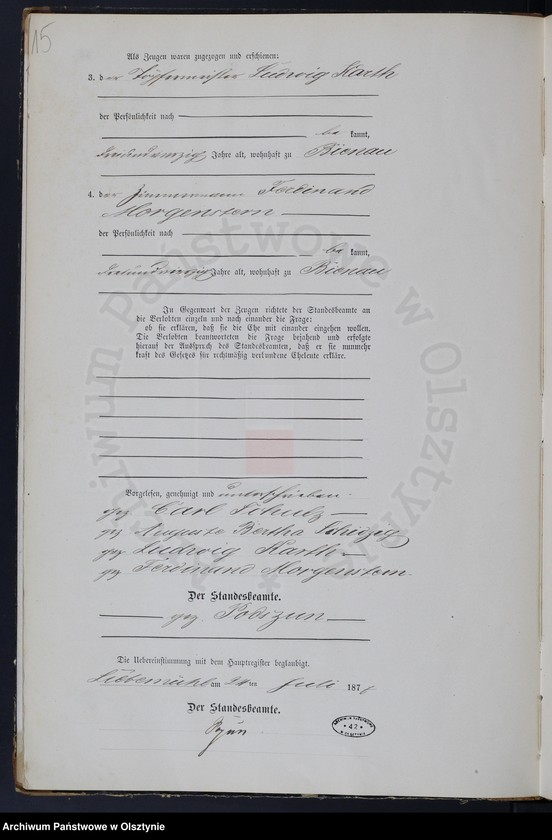 15
Als Zeugen waren zugezogen und erschienen:
3. der Töpfermeister Ludwig Karth
der Persönlichkeit nach
be kannt,
Jahre alt, wohnhaft zu Bienau
4. der Zimmermann Ferdinand
Morgenstern
der Persönlichkeit nach
be kannt,
Jahre alt, wohnhaft zu Bienau
In Gegenwart der Zeugen richtete der Standesbeamte an
die Verlobten einzeln und nach einander die Frage:
ob sie erklären, daß sie die Ehe mit einander eingehen wollen.
Die Verlobten beantworteten die Frage bejahend und erfolgte
hierauf der Ausspruch des Standesbeamten, daß er sie nunmehr
kraft des Gesetzes für rechtmäßig verbundene Eheleute erkläre.
Vorgelesen, genehmigt und unterschrieben
gez Carl Schulz
gez Auguste Bertha
gez Ludwig Karth
gez Ferdinand Morgenstern.
Der Standesbeamte.
gez.
Die Uebereinstimmung mit dem Hauptregister beglaubigt.
Liebemühl am 24 ten Juli 187
Der Standesbeamte.
* 42 *
Archiwum Państwowe w Olsztynie
Archiwum Państwowe w Olsztynie